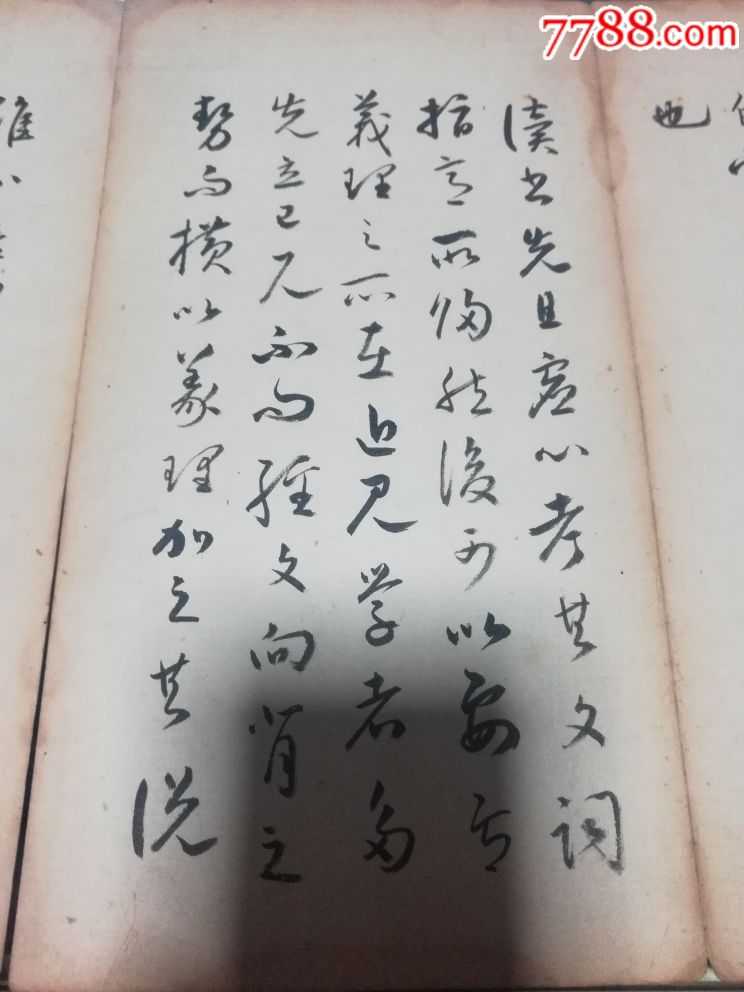 也
讀書先且虛心考其文詞
指意所歸然後可以要其
義理之所在近見學者多
先立己見不問經文向背之
勢而橫以義理加之其說
雖不
7788.com